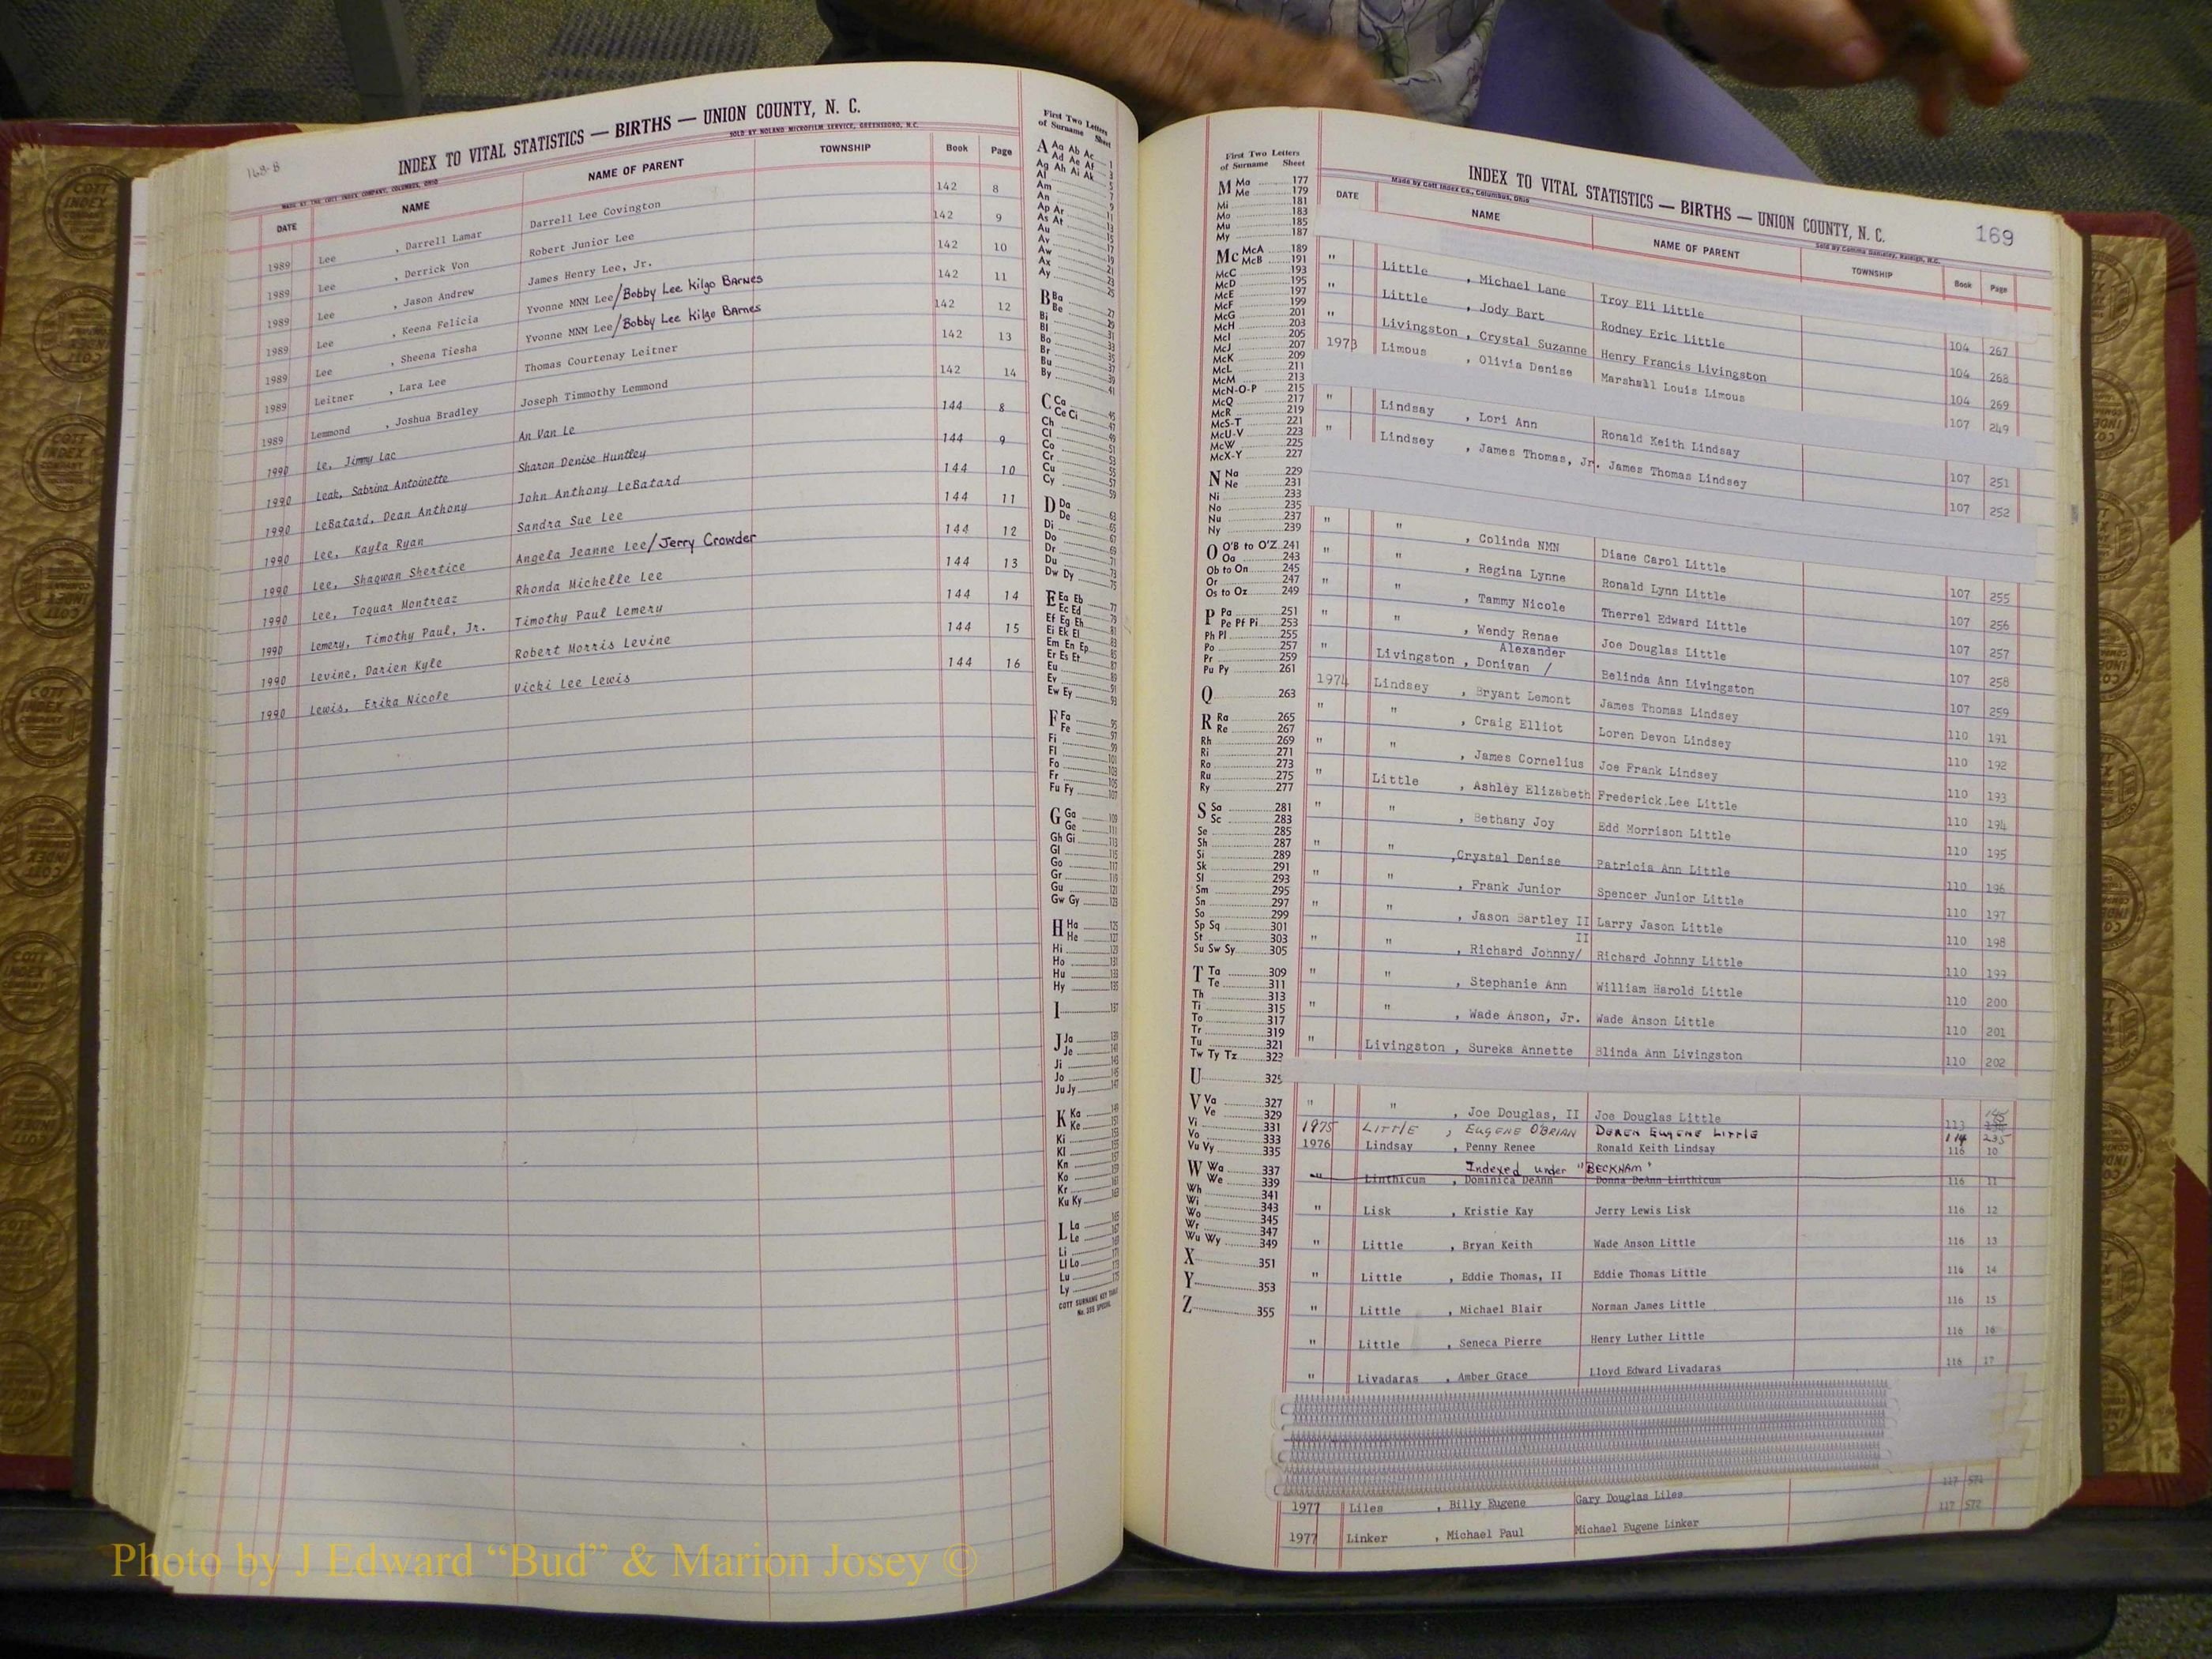 168-B
INDEX TO VITAL STATISTICS — BIRTHS — UNION COUNTY, N. C.
MADE BY THE COTT INDEX COMPANY, COLUMBUS, OHIO SOLD BY NOLAND MICROFILM SERVICE, GREENSBORO, N.C.
DATE NAME NAME OF PARENT TOWNSHIP Book Page
1989 Lee , Darrell Lamar Darrell Lee Covington 142 8
1989 Lee , Derrick Von Robert Junior Lee 142 9
1989 Lee , Jason Andrew James Henry Lee, Jr. 142 10
1989 Lee , Keena Felicia Yvonne MNM Lee/Bobby Lee Kilgo Barnes 142 11
1989 Lee , Sheena Tiesha Yvonne MNM Lee/Bobby Lee Kilgo Barnes 142 12
1989 Leitner , Lara Lee Thomas Courtenay Leitner 142 13
1989 Lemmond , Joshua Bradley Joseph Timmothy Lemmond 142 14
1990 Le, Jimmy Lac An Van Le 144 8
1990 Leak, Sabrina Antoinette Sharon Denise Huntley 144 9
1990 LeBatard, Dean Anthony John Anthony LeBatard 144 10
1990 Lee, Kayla Ryan Sandra Sue Lee 144 11
1990 Lee, Shaqwan Shertice Angela Jeanne Lee/Jerry Crowder 144 12
1990 Lee, Toquar Montreaz Rhonda Michelle Lee 144 13
1990 Lemery, Timothy Paul, Jr. Timothy Paul Lemery 144 14
1990 Levine, Darien Kyle Robert Morris Levine 144 15
1990 Lewis, Erika Nicole Vicki Lee Lewis 144 16
First Two Letters
of Surname Sheet
A Aa Ab Ac 1
Ad Ae Af 3
Ag Ah Ai Ak 5
Al
Am
An
Ap Ar
As At
Au
Av
Aw
Ax
Ay
B Ba
Be 27
Bi 29
Bl 31
Bo 33
Br 35
Bu 37
By 41
C Ca 45
Ce Ci
Ch 47
Cl 49
Co 51
Cr 53
Cu 55
Cy 59
D Da
De 63
Di 65
Do 67
Dr 69
Du 71
Dw Dy 75
E Ea Eb 77
Ec Ed 79
Ef Eg Eh 81
Ei Ek El 83
Em En Ep 85
Er Es Et 87
Eu 89
Ev 91
Ew Ey 93
F Fa 95
Fe 97
Fi 99
Fl 101
Fo 103
Fr 105
Fu Fy 107
G Ga 109
Ge 111
Gh Gi 113
Gl 115
Go 117
Gr 119
Gu 121
Gw Gy 123
H Ha 125
He 127
Hi 129
Ho 131
Hu 133
Hy 135
I 137
J Ja 139
Je 141
Ji 143
Jo 145
Ju Jy 147
K Ka 149
Ke 151
Ki 153
Kl 155
Kn 157
Ko 159
Kr 161
Ku Ky 163
L La 165
Le 167
Li
Ll Lo
Lu
Ly
COTT SURNAME KEY TABLE
First Two Letters
of Surname Sheet
M Ma 177
Me 179
Mi 181
Mo 183
Mu 185
My 187
Mc McA 189
McB 191
McC 193
McD 195
McE 197
McF 199
McG 201
McH 203
McI 205
McJ 207
McK 209
McL 211
McM 213
McN-O-P 215
McQ 217
McR 219
McS-T 221
McU-V 223
McW 225
McX-Y 227
N Na 229
Ne 231
Ni 233
No 235
Nu 237
Ny 239
O O'B to O'Z 241
Oa 243
Ob to On 245
Or 247
Os to Oz 249
P Pa 251
Pe Pf Pi 253
Ph Pl 255
Po 257
Pr 259
Pu Py 261
Q 263
R Ra 265
Re 267
Rh 269
Ri 271
Ro 273
Ru 275
Ry 277
S Sa 281
Sc 283
Se 285
Sh 287
Si 289
Sk 291
Sl 293
Sm 295
Sn 297
So 299
Sp Sq 301
St 303
Su Sw Sy 305
T Ta 309
Te 311
Th 313
Ti 315
To 317
Tr 319
Tu 321
Tw Ty Tz 323
U 325
V Va 327
Ve 329
Vi 331
Vo 333
Vu Vy 335
W Wa 337
We 339
Wh 341
Wi 343
Wo 345
Wr 347
Wu Wy 349
X 351
Y 353
Z 355
INDEX TO VITAL STATISTICS — BIRTHS — UNION COUNTY, N. C. 169
Made by Cott Index Co., Columbus, Ohio
DATE NAME NAME OF PARENT TOWNSHIP Book Page
" Little , Michael Lane Troy Eli Little 104 267
" Little , Jody Bart Rodney Eric Little 104 268
" Livingston , Crystal Suzanne Henry Francis Livingston 104 269
1973 Limous , Olivia Denise Marshall Louis Limous 107 249
" Lindsay , Lori Ann Ronald Keith Lindsay 107 251
" Lindsey , James Thomas, Jr. James Thomas Lindsey 107 252
" " , Colinda NMN Diane Carol Little 107 255
" " , Regina Lynne Ronald Lynn Little 107 256
" " , Tammy Nicole Therrel Edward Little 107 257
" " , Wendy Renae Joe Douglas Little 107 258
Alexander
" Livingston , Donivan / Belinda Ann Livingston 107 259
1974 Lindsey , Bryant Lemont James Thomas Lindsey 110 191
" " , Craig Elliot Loren Devon Lindsey 110 192
" " , James Cornelius Joe Frank Lindsey 110 193
" Little , Ashley Elizabeth Frederick Lee Little 110 194
" " , Bethany Joy Edd Morrison Little 110 195
" " ,Crystal Denise Patricia Ann Little 110 196
" " , Frank Junior Spencer Junior Little 110 197
" " , Jason Bartley II Larry Jason Little 110 198
II
" " , Richard Johnny/ Richard Johnny Little 110 199
" " , Stephanie Ann William Harold Little 110 200
" " , Wade Anson, Jr. Wade Anson Little 110 201
" Livingston , Sureka Annette Blinda Ann Livingston 110 202
" " , Joe Douglas, II Joe Douglas Little 113
1975 LITTLE , EUGENE O'BRIAN DEREN EUGENE LITTLE 114 235
1976 Lindsay , Penny Renee Ronald Keith Lindsay 116 10
Indexed under "BECKHAM"
" Linthicum , Dominica DeAnn Donna DeAnn Linthicum 116 11
" Lisk , Kristie Kay Jerry Lewis Lisk 116 12
" Little , Bryan Keith Wade Anson Little 116 13
" Little , Eddie Thomas, II Eddie Thomas Little 116 14
" Little , Michael Blair Norman James Little 116 15
" Little , Seneca Pierre Henry Luther Little 116 16
" Livadaras , Amber Grace Lloyd Edward Livadaras 116 17
1977 Liles , Billy Eugene Gary Douglas Liles 117 571
1977 Linker , Michael Paul Michael Eugene Linker 117 572
Photo by J Edward “Bud” & Marion Josey ©